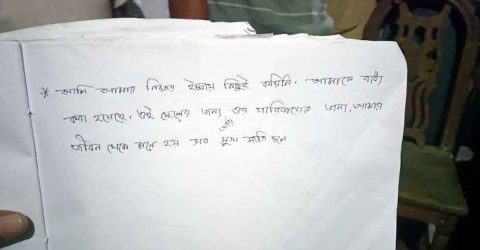 * আমি আমার নিজের ইচ্ছায় কিছুই করিনি. আমাকে বাধ্য
করা হয়েছে, ওই ছেলের জন্য ওর পরিবারের জন্য, আমার
জীবন থেকে চলে হয় সব সুখ শান্তি চলে